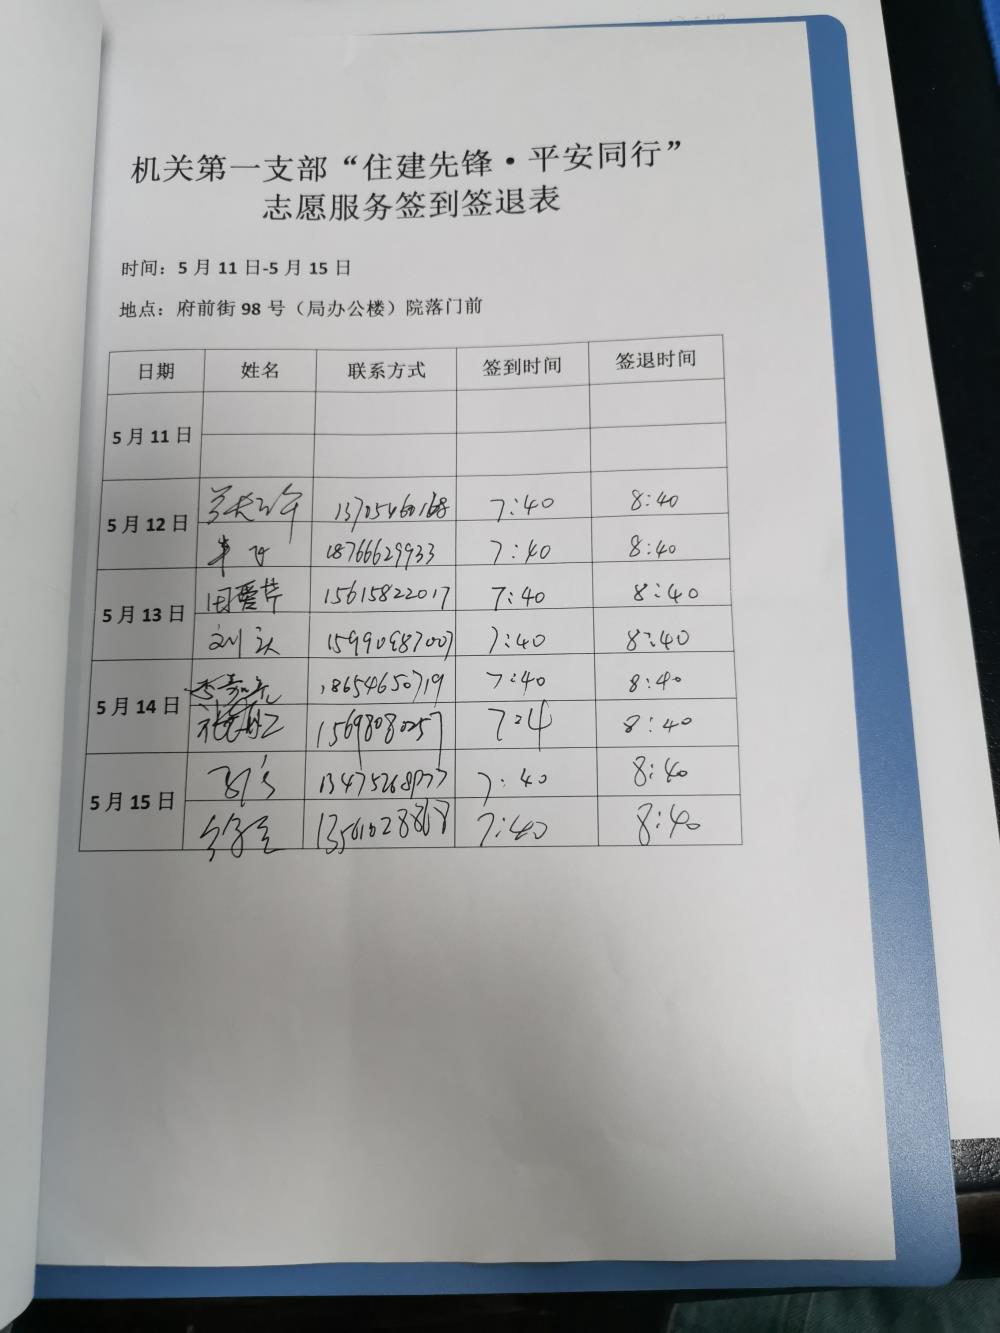 机关第一支部“住建先锋·平安同行”
志愿服务签到签退表
时间：5 月 11 日-5 月 15 日
地点：府前街 98 号（局办公楼）院落门前
日期 姓名 联系方式 签到时间 签退时间
5 月 11 日
5 月 12 日 13705460168 7:40 8:40
18766629933 7:40 8:40
5 月 13 日 田爱芹 15615822017 7:40 8:40
刘 15990987007 7:40 8:40
5 月 14 日 李嘉元 18654650719 7:40 8:40
15698080257 7:4 8:40
5 月 15 日 7:40 8:40
7:40 8:40